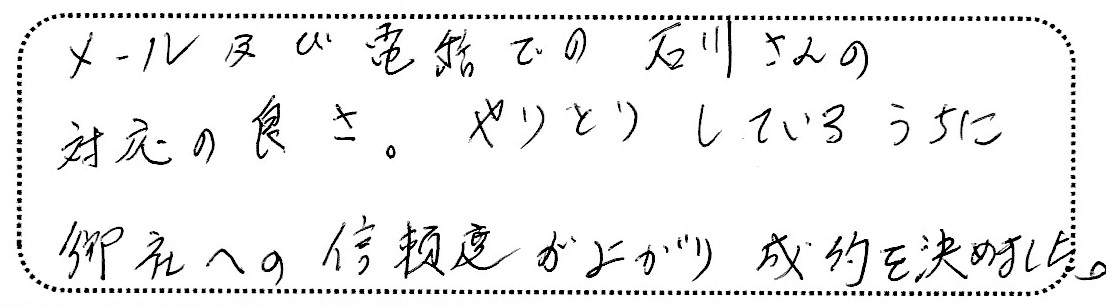 メール及び電話での石川さんの
対応の良さ。やりとりしているうちに
御社への信頼度が上がり成約を決めました。